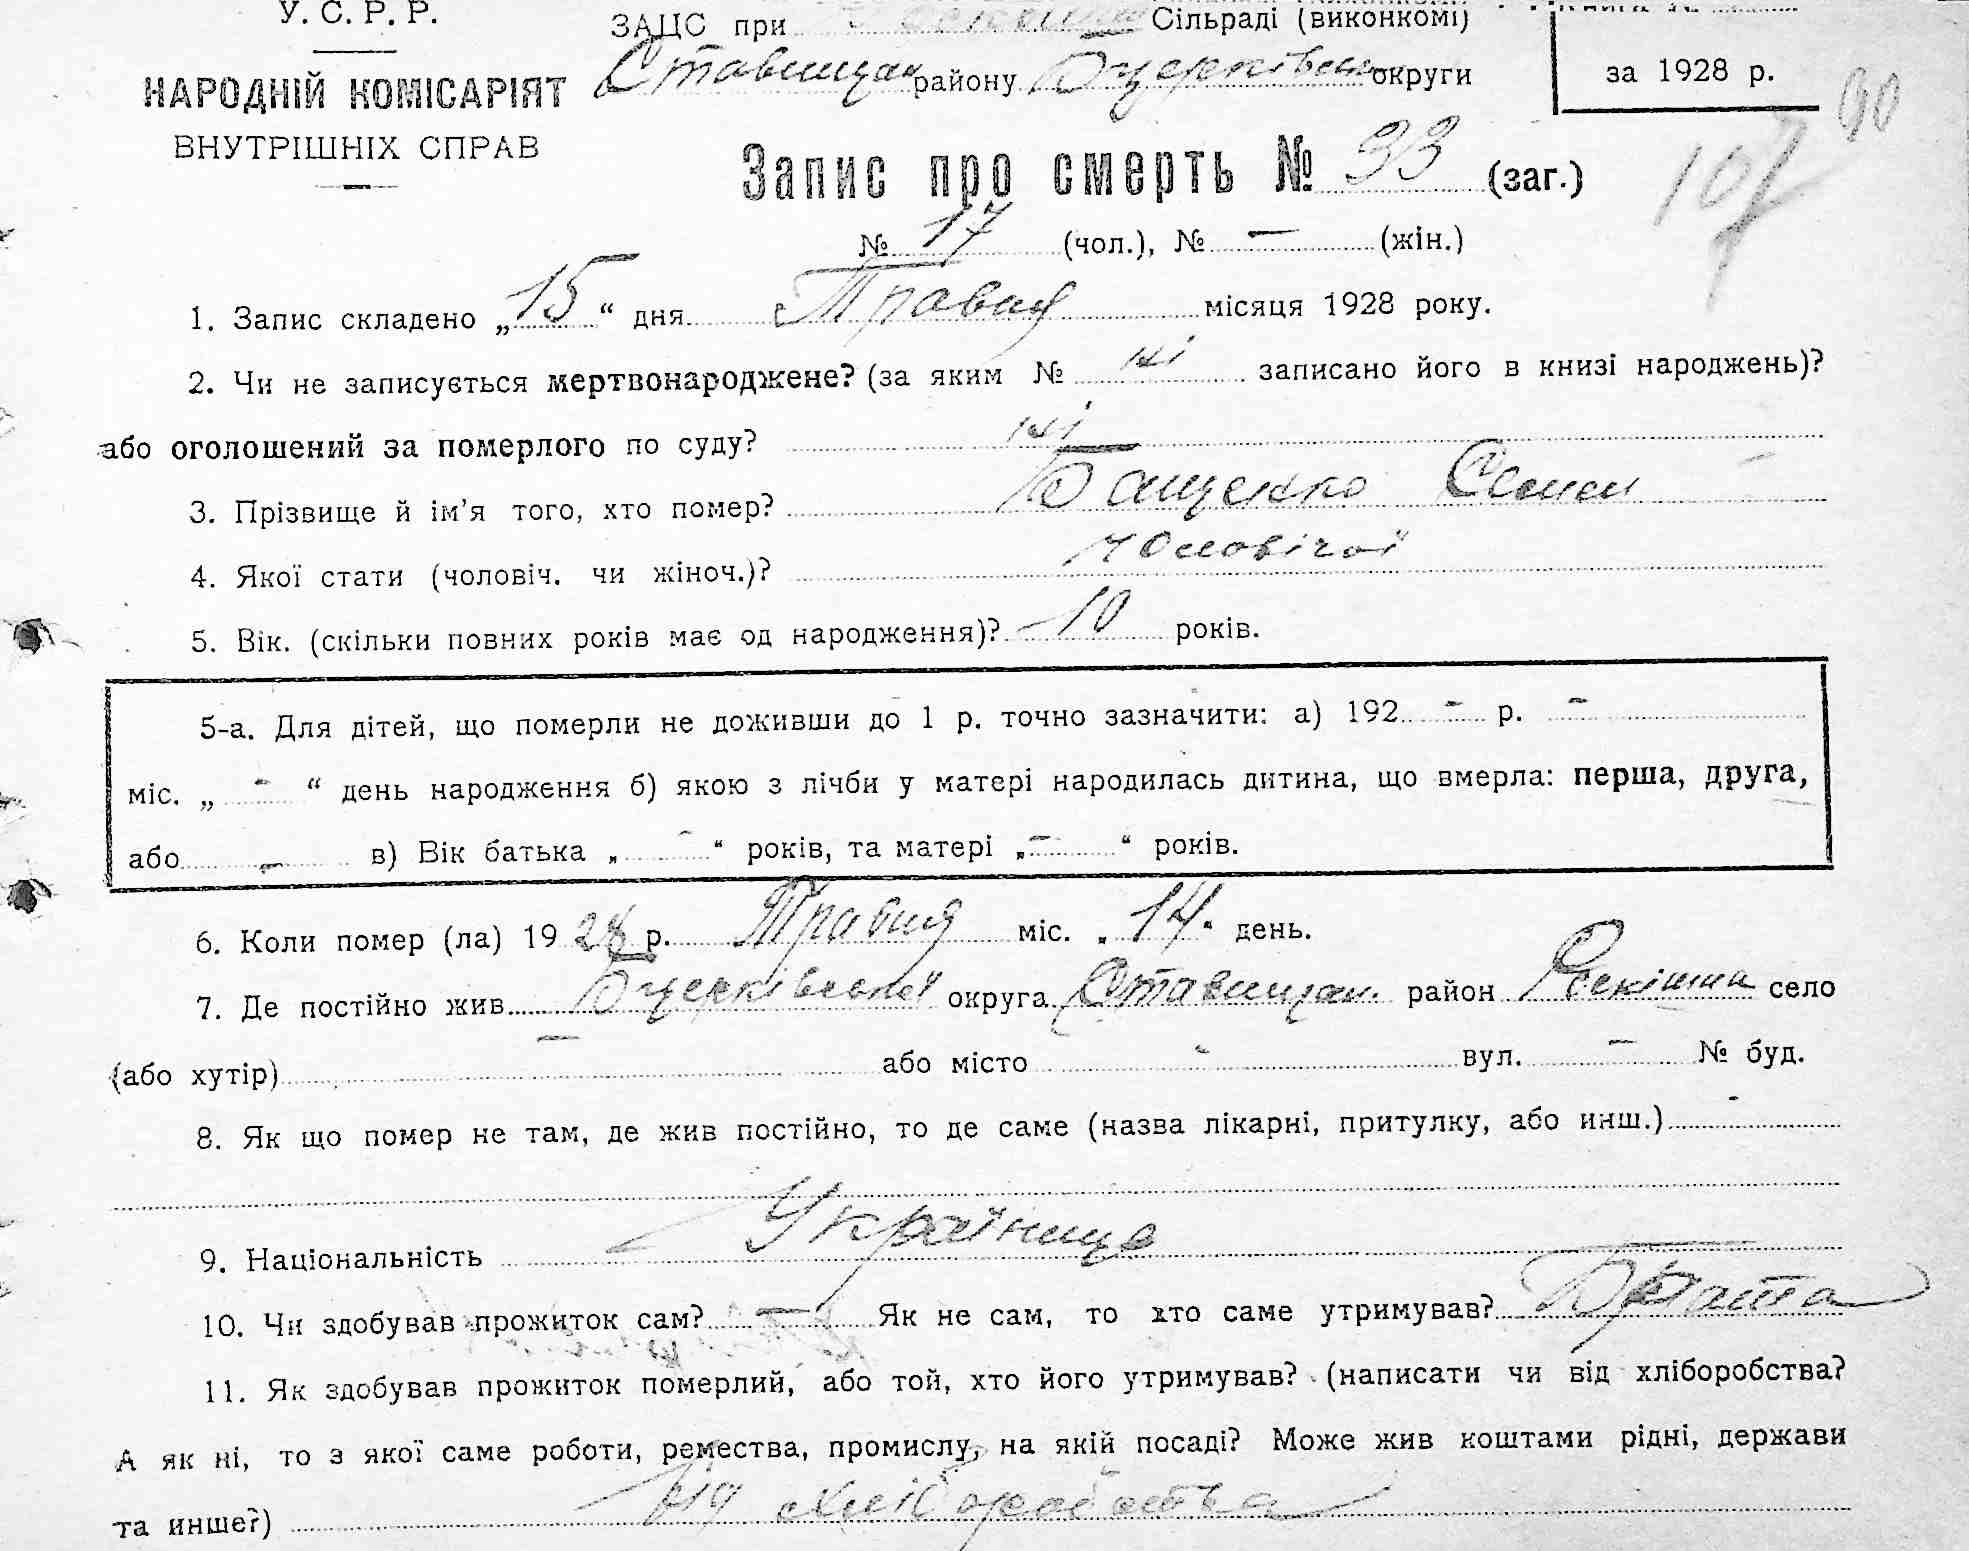 У. С. Р. Р.
НАРОДНІЙ КОМІСАРІЯТ
ВНУТРІШНІХ СПРАВ
ЗАЦС при Сільраді (виконкомі)
Ставищан району Бцерківськ округи
за 1928 р.
90
107
Запис про смерть № 33 (заг.)
№ 17 (чол.), № — (жін.)
1. Запис складено „15“ дня Травня місяця 1928 року.
2. Чи не записується мертвонароджене? (за яким № ні записано його в книзі народжень)?
або оголошений за померлого по суду? ні
3. Прізвище й ім’я того, хто помер? Бащенко Семен
4. Якої стати (чоловіч. чи жіноч.)? Чоловічої
5. Вік. (скільки повних років має од народження)? 10 років.
5-а. Для дітей, що померли не доживши до 1 р. точно зазначити: а) 192 - р. -
міс. „ - “ день народження б) якою з лічби у матері народилась дитина, що вмерла: перша, друга,
або - в) Вік батька „ - “ років, та матері „ - “ років.
6. Коли помер (ла) 19 28 р. Травня міс. „14“ день.
7. Де постійно жив Бцерківської округа Ставищан. район село
(або хутір) — або місто - вул. - № буд.
8. Як що помер не там, де жив постійно, то де саме (назва лікарні, притулку, або инш.) -
9. Національність Українець
10. Чи здобував прожиток сам? — Як не сам, то хто саме утримував?
11. Як здобував прожиток померлий, або той, хто його утримував? (написати чи від хліборобства?
А як ні, то з якої саме роботи, ремества, промислу, на якій посаді? Може жив коштами рідні, держави
та инше?) Від хліборобства